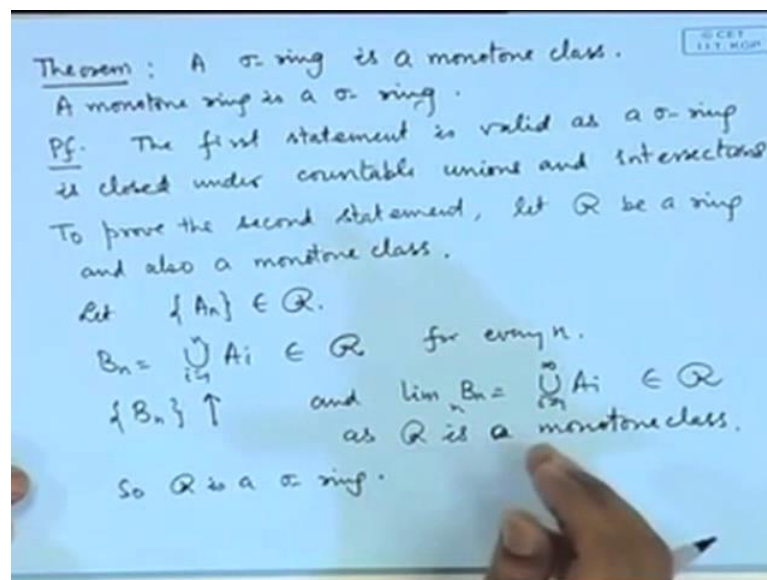 © CET
I.I.T. KGP
Theorem : A σ- ring is a monotone class.
A monotone ring is a σ- ring.
Pf. The first statement is valid as a σ- ring
is closed under countable unions and intersections
To prove the second statement, let R be a ring
and also a monotone class.
Let {An} ∈ R.
Bn = ⋃_{i=1}^{n} Ai ∈ R for every n.
{Bn} ↑ and lim_n Bn = ⋃_{i=1}^{∞} Ai ∈ R
as R is a monotone class.
So R is a σ- ring.